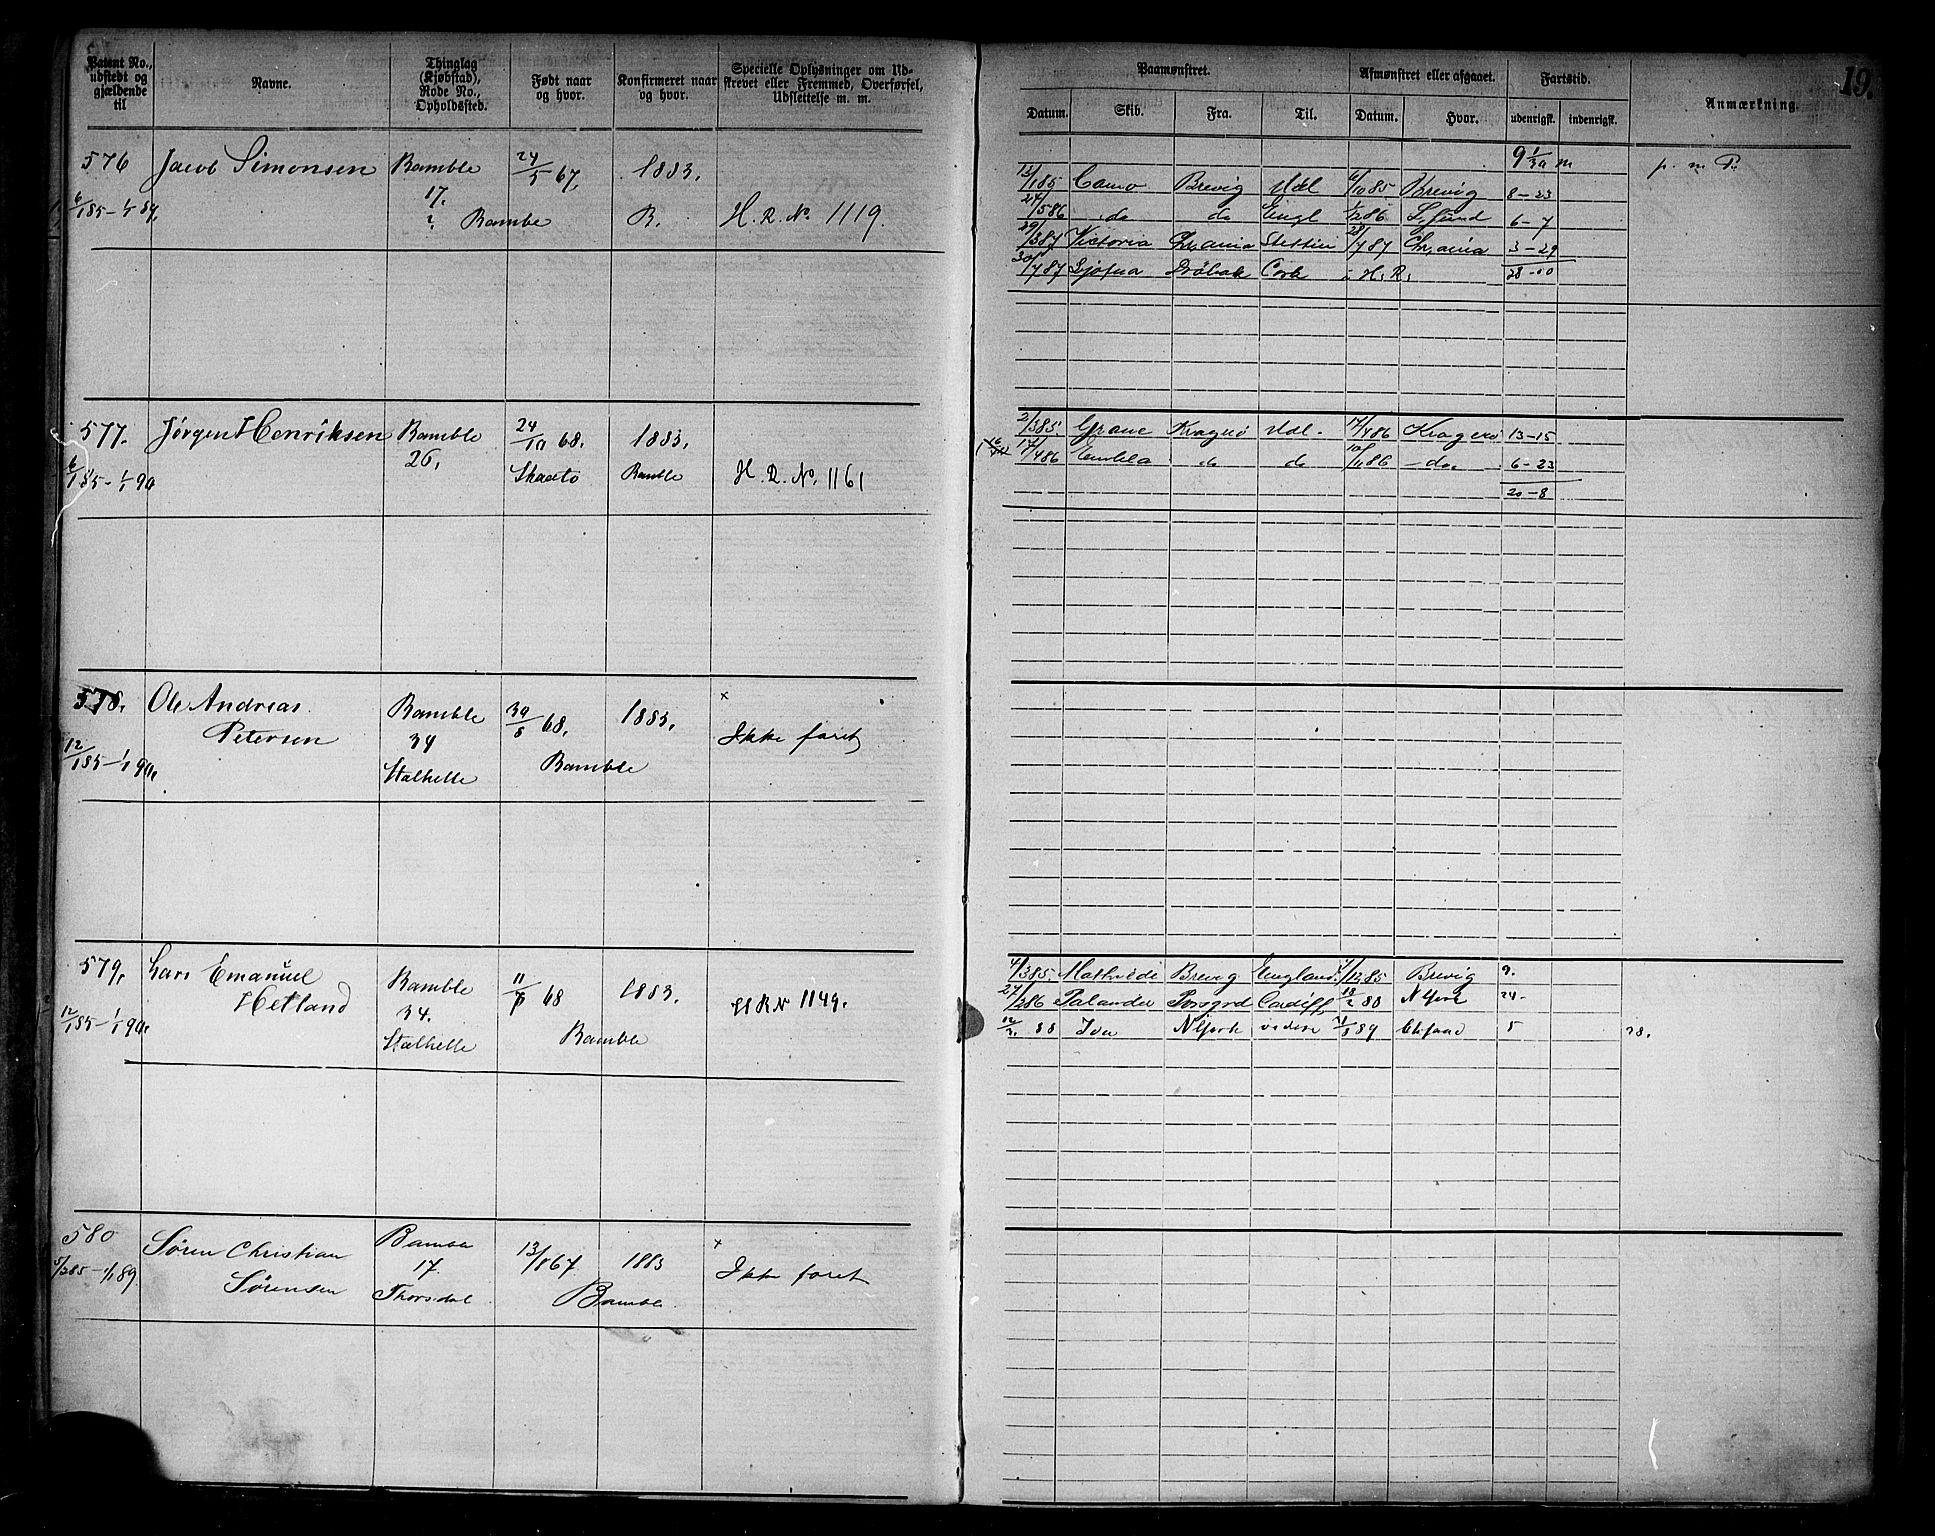 19.
Patent No., udstedt og gjældende til
Navne.
Thinglag (Kjøbstad), Rode No., Opholdssted.
Født naar og hvor.
Konfirmeret naar og hvor.
Specielle Oplysninger om Udskrevet eller Fremmed, Overførsel, Udslettelse m. m.
Paamønstret.
Afmønstret eller afgaaet.
Fartstid.
Anmærkning.
Datum. Skib. Fra. Til. Datum. Hvor. udenrigsk. indenrigsk.
576 Jacob Simonsen Bamble 24/5 67, 1883,
17.
6/1 85 – 1/1 89, ? Bamble B. H. R. No. 1119.
9 1/30 m p. m. P.
13/1 85 Camo Brevig Udl 6/10 85 Brevig 8 – 23
27/5 86 do do Engl 1/12 86 L. sund 6 – 7
29/3 87 Victoria Chr,ania Stettin 28/7 87 Chr,ania 3 – 29
30/7 87 Sjofna Drøbak Cork i H. R. 28 – 00
577. Jørgen Henriksen Bamble 24/10 68. 1883.
26,
6/1 85 – 1/1 90 Skaato Bamble H. R. No. 1161
2/3 85. Grane Kragerö Udl. 17/4 86 Kragerö 13 – 15
17/4 86 Embla do do 10/11 86 – do. 6 – 23
20 – 8
578. Ole Andreas Petersen Bamble 30/8 68. 1883.
34
12/1 85 – 1/1 90. Stathelle Bamble
× Ikke faret
579, Lars Emanuel Hetland Bamble 11/7 68 1883.
34.
12/1 85 – 1/1 90. Stathelle Bamble H R No 1149.
4/3 85 Mathilde Brevig England. 1/12 85 Brevig 9.
27/2 86 Palander Porsgrd Cardiff, 18/2 88 N York 24 –
12/3. 88 Ida N York videre 2/8 89 5 28.
580 Søren Christian Sørensen Bamble 13/8 67 1883
17.
5/2 85 – 1/1 89. Thorsdal Bamble
× Ikke faret